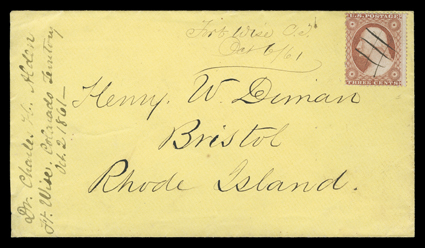 Fort Wise
Oct 6/61
U.S. POSTAGE
THREE CENTS
Henry W. Diman
Bristol
Rhode Island.
Dr. Charles H. Alden
Ft. Wise, Colorado Territory
Oct. 2. 1861 —